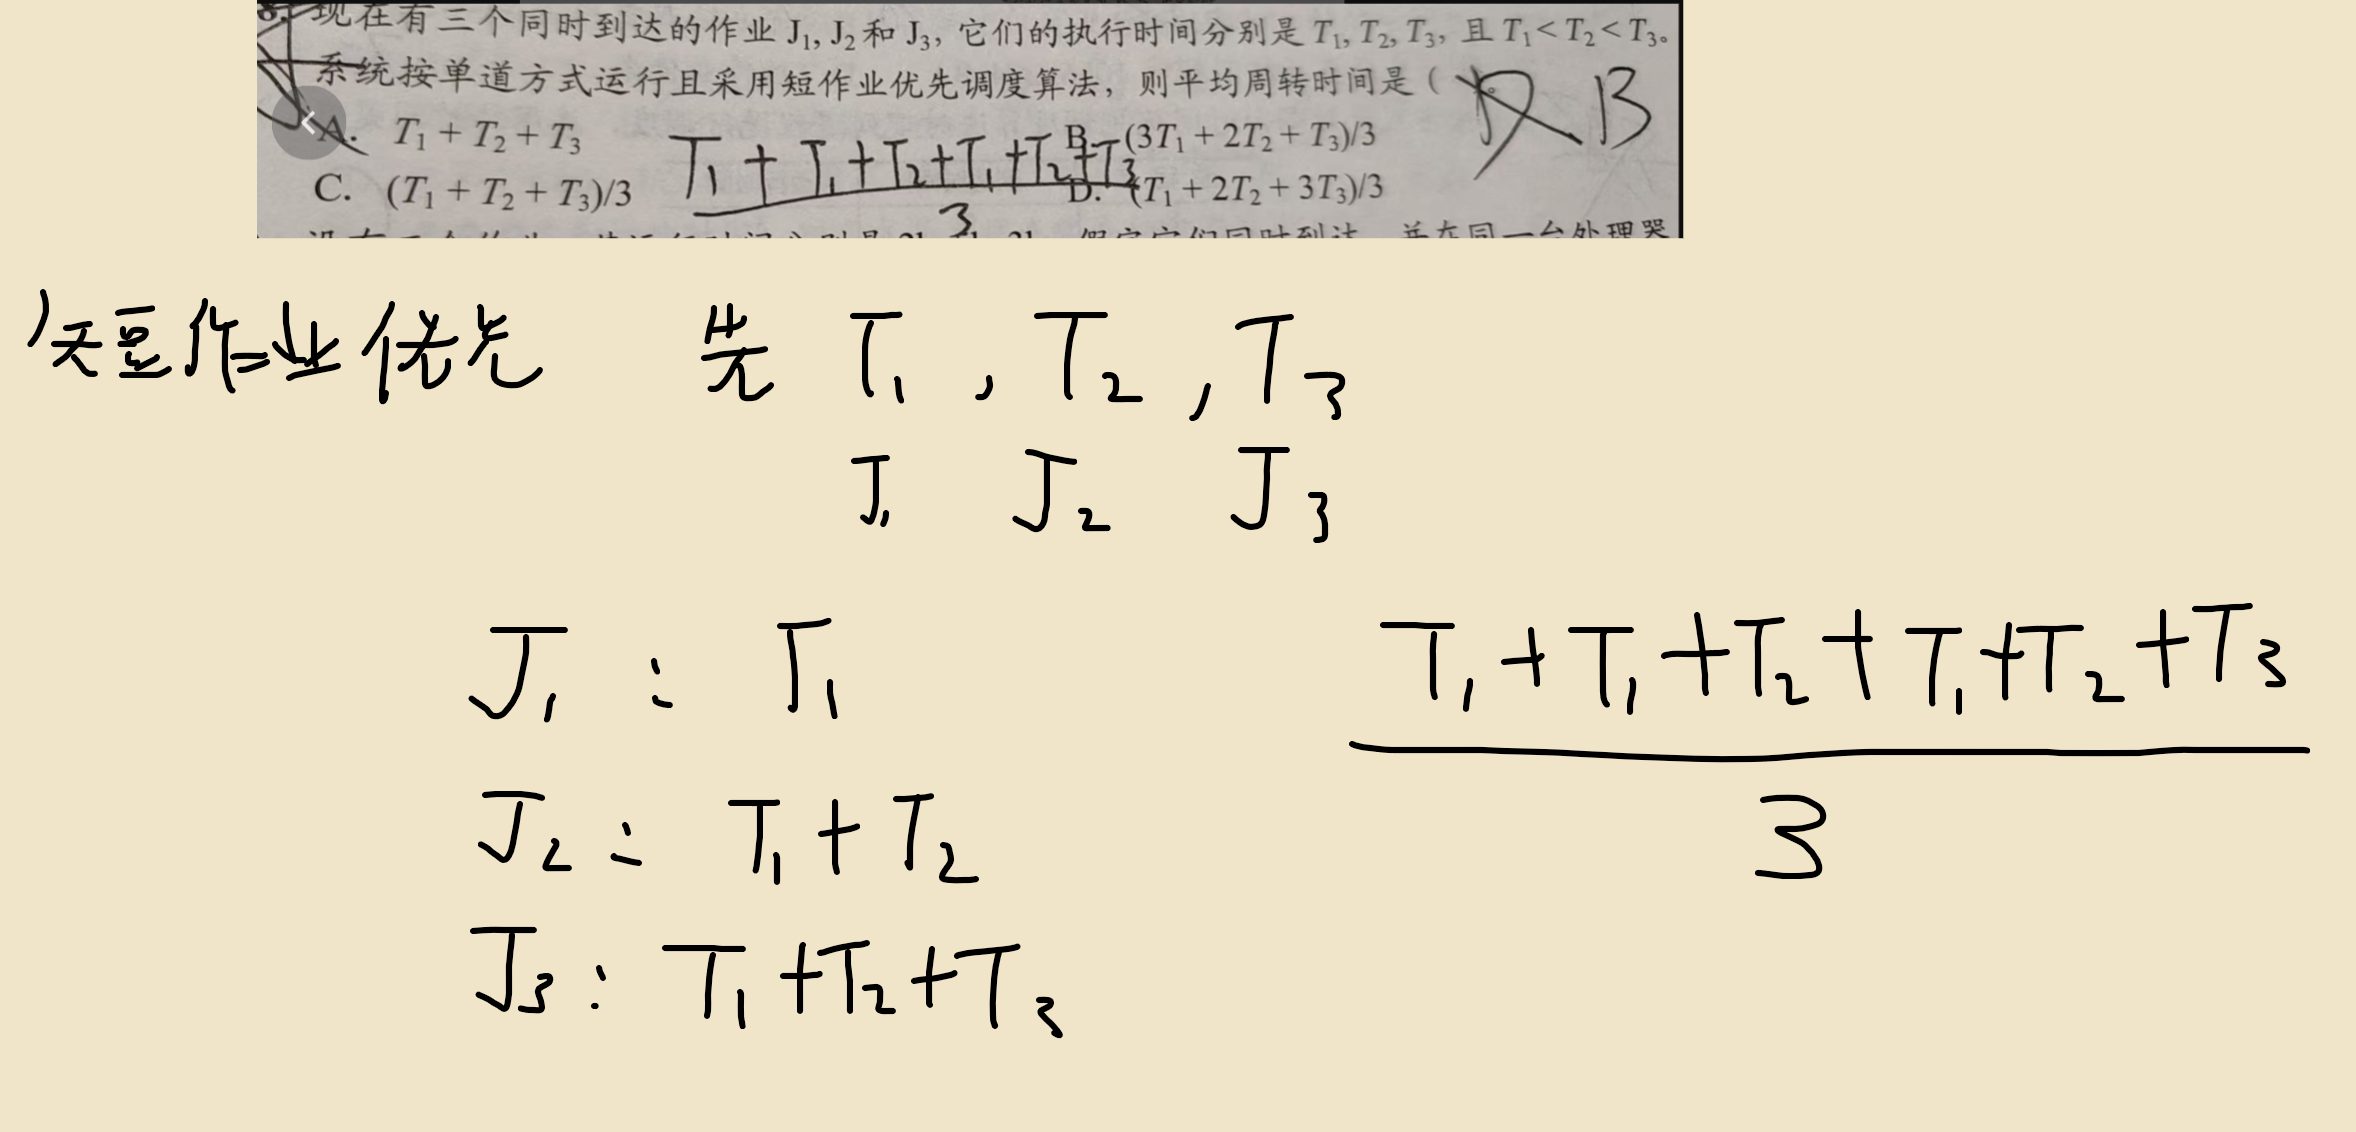 现在有三个同时到达的作业 J₁, J₂ 和 J₃, 它们的执行时间分别是 T₁, T₂, T₃, 且 T₁ < T₂ < T₃。
系统按单道方式运行且采用短作业优先调度算法，则平均周转时间是（ B
A. T₁ + T₂ + T₃ B. (3T₁ + 2T₂ + T₃)/3
T₁ + T₁ + T₂ + T₁ + T₂ + T₃
C. (T₁ + T₂ + T₃)/3 D. (T₁ + 2T₂ + 3T₃)/3
3
短作业优先 先 T₁ , T₂ , T₃
J₁ J₂ J₃
J₁ : T₁ T₁ + T₁ + T₂ + T₁ + T₂ + T₃
J₂ : T₁ + T₂ 3
J₃ : T₁ + T₂ + T₃